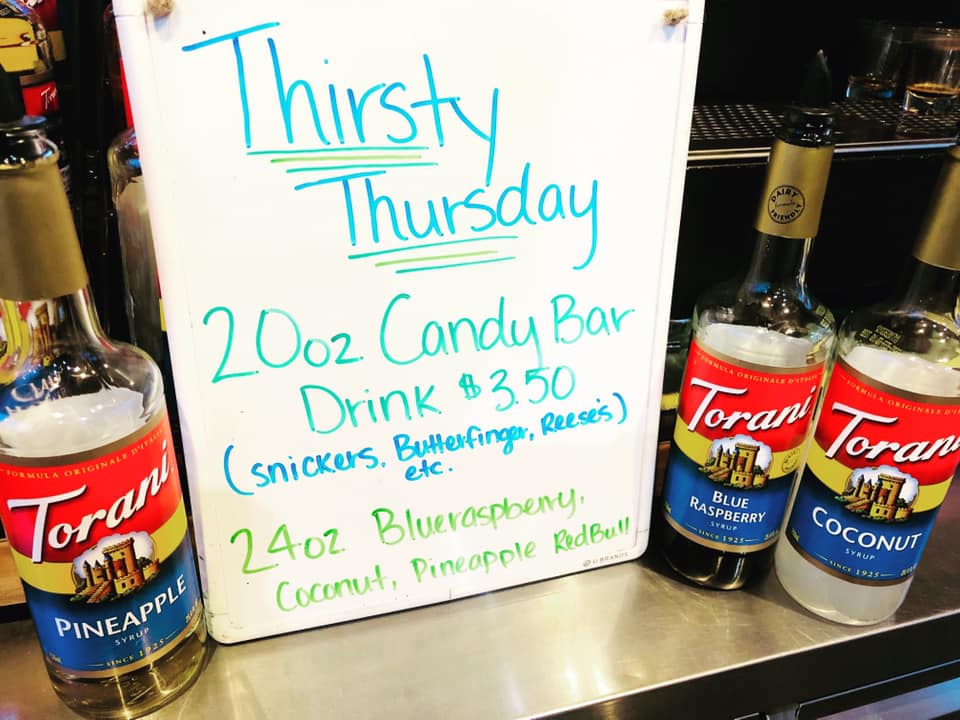 Thirsty
Thursday
20oz Candy Bar
Drink $3.50
(snickers, Butterfinger, Reese's)
etc.
24oz Blueraspberry,
Coconut, Pineapple RedBull
U BRANDS
FORMULA ORIGINALE D'ITALIA
Torani
PINEAPPLE
SYRUP
SINCE 1925
DAIRY
FRIENDLY
FORMULA ORIGINALE D'IT
Torani
BLUE
RASPBERRY
SYRUP
SINCE 1925
FORMULA ORIGINALE D'IT
Torani
COCONUT
SYRUP
SINCE 1925